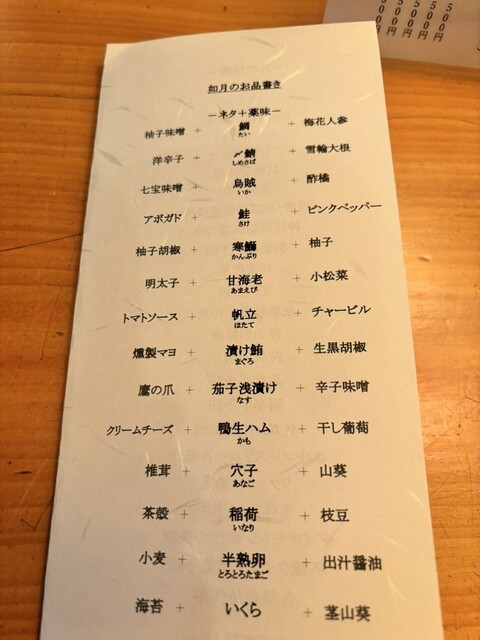 500円
500円
500円
500円
如月のお品書き
―ネタ+薬味―
柚子味噌 + 鯛 + 梅花人参
たい
洋辛子 + 〆鯖 + 雪輪大根
しめさば
七宝味噌 + 烏賊 + 酢橘
いか
アボガド + 鮭 + ピンクペッパー
さけ
柚子胡椒 + 寒鰤 + 柚子
かんぶり
明太子 + 甘海老 + 小松菜
あまえび
トマトソース + 帆立 + チャービル
ほたて
燻製マヨ + 漬け鮪 + 生黒胡椒
まぐろ
鷹の爪 + 茄子浅漬け + 辛子味噌
なす
クリームチーズ + 鴨生ハム + 干し葡萄
かも
椎茸 + 穴子 + 山葵
あなご
茶殻 + 稲荷 + 枝豆
いなり
小麦 + 半熟卵 + 出汁醤油
とろとろたまご
海苔 + いくら + 茎山葵